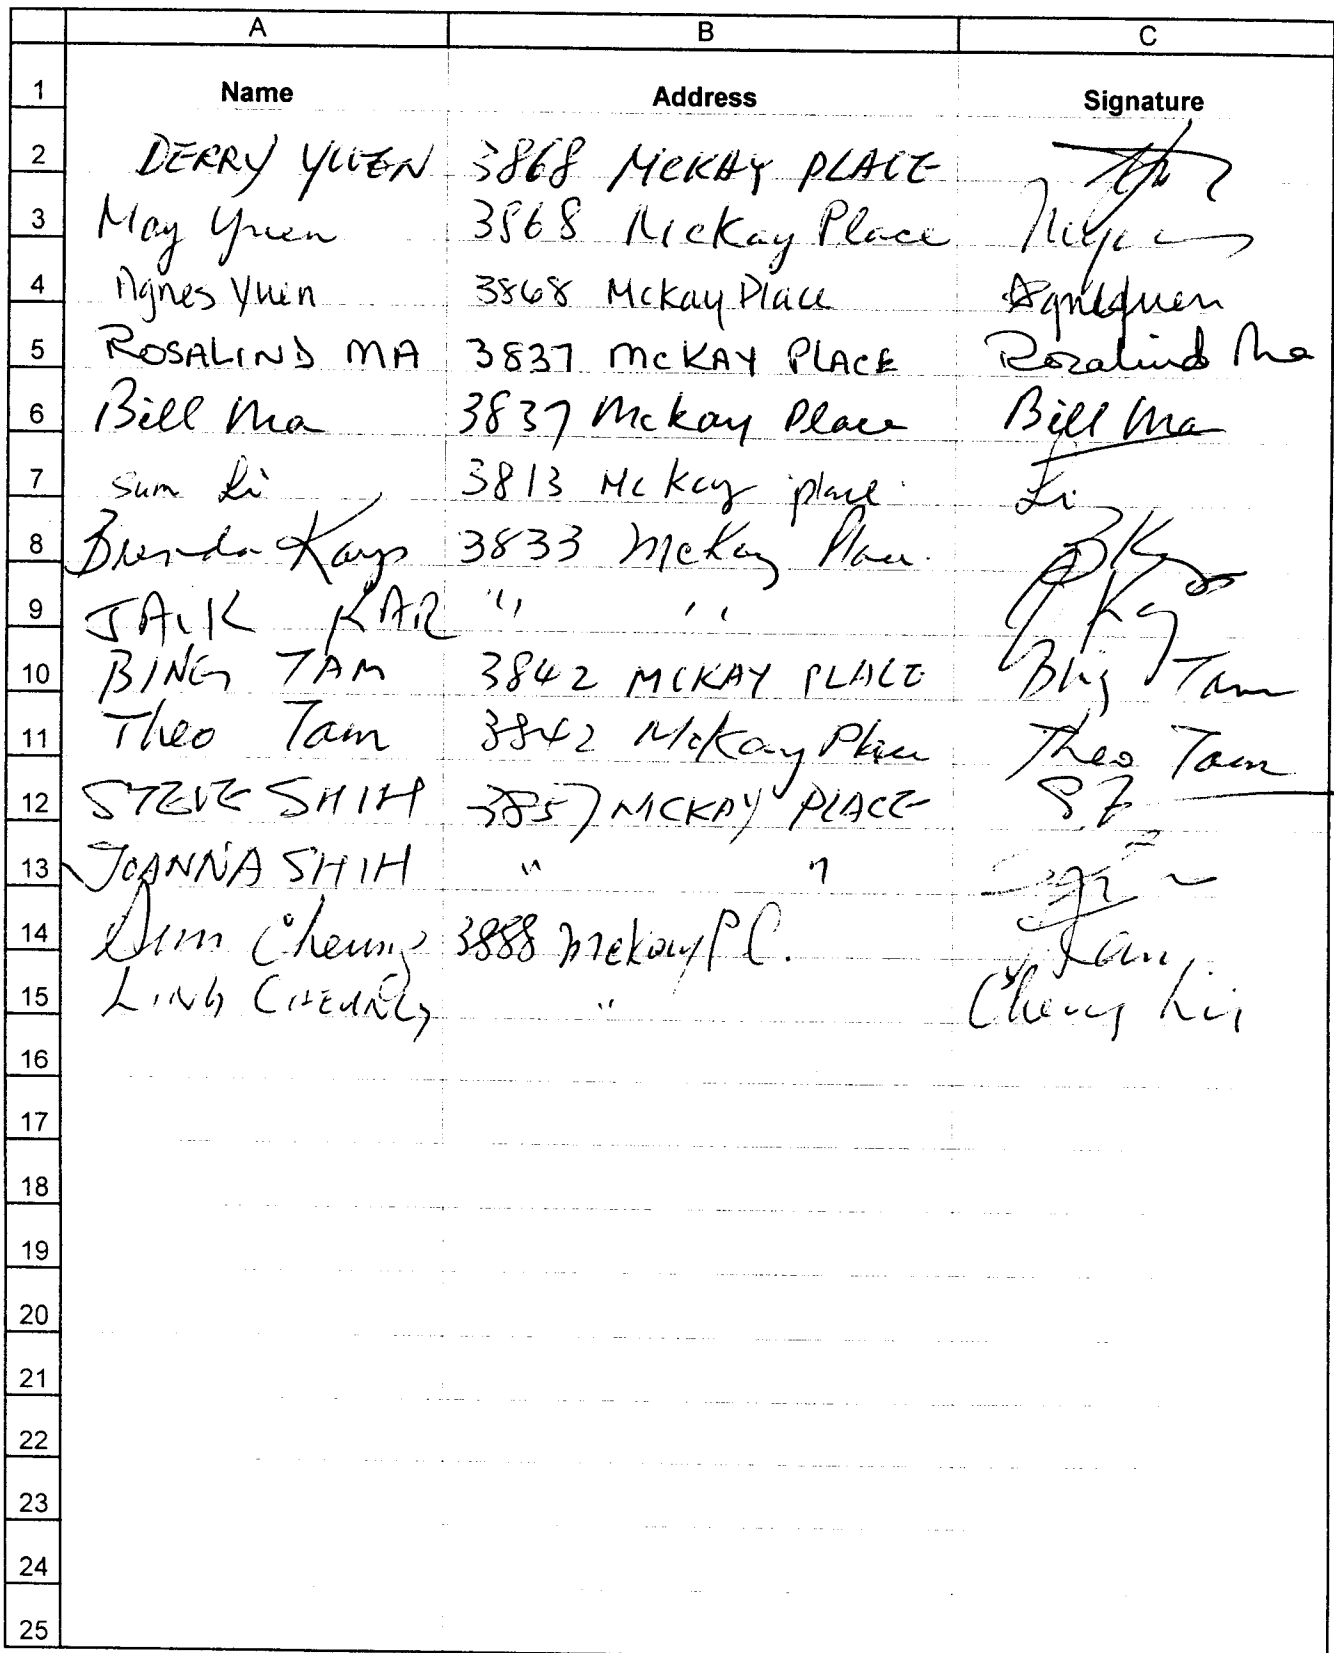 A B C
1 Name Address Signature
2 DERRY YUEN 3868 McKAY PLACE
3 May Yuen 3868 McKay Place
4 Agnes Yuen 3868 McKay Place Agnes Yuen
5 ROSALIND MA 3837 McKAY PLACE Rosalind Ma
6 Bill Ma 3837 Mckay Place Bill Ma
7 Sum Li 3813 Mc Kay place Li
8 Brenda Kay 3833 McKay Place
9 " "
10 BING TAM 3842 MCKAY PLACE Bing Tam
11 Theo Tam 3842 McKay Place Theo Tam
12 STEVE SHIH 3857 MCKAY PLACE
13 JOANNA SHIH " "
14 Cheung 3888 McKay Pl.
15 LING CHEUNG " Cheung Ling
16
17
18
19
20
21
22
23
24
25